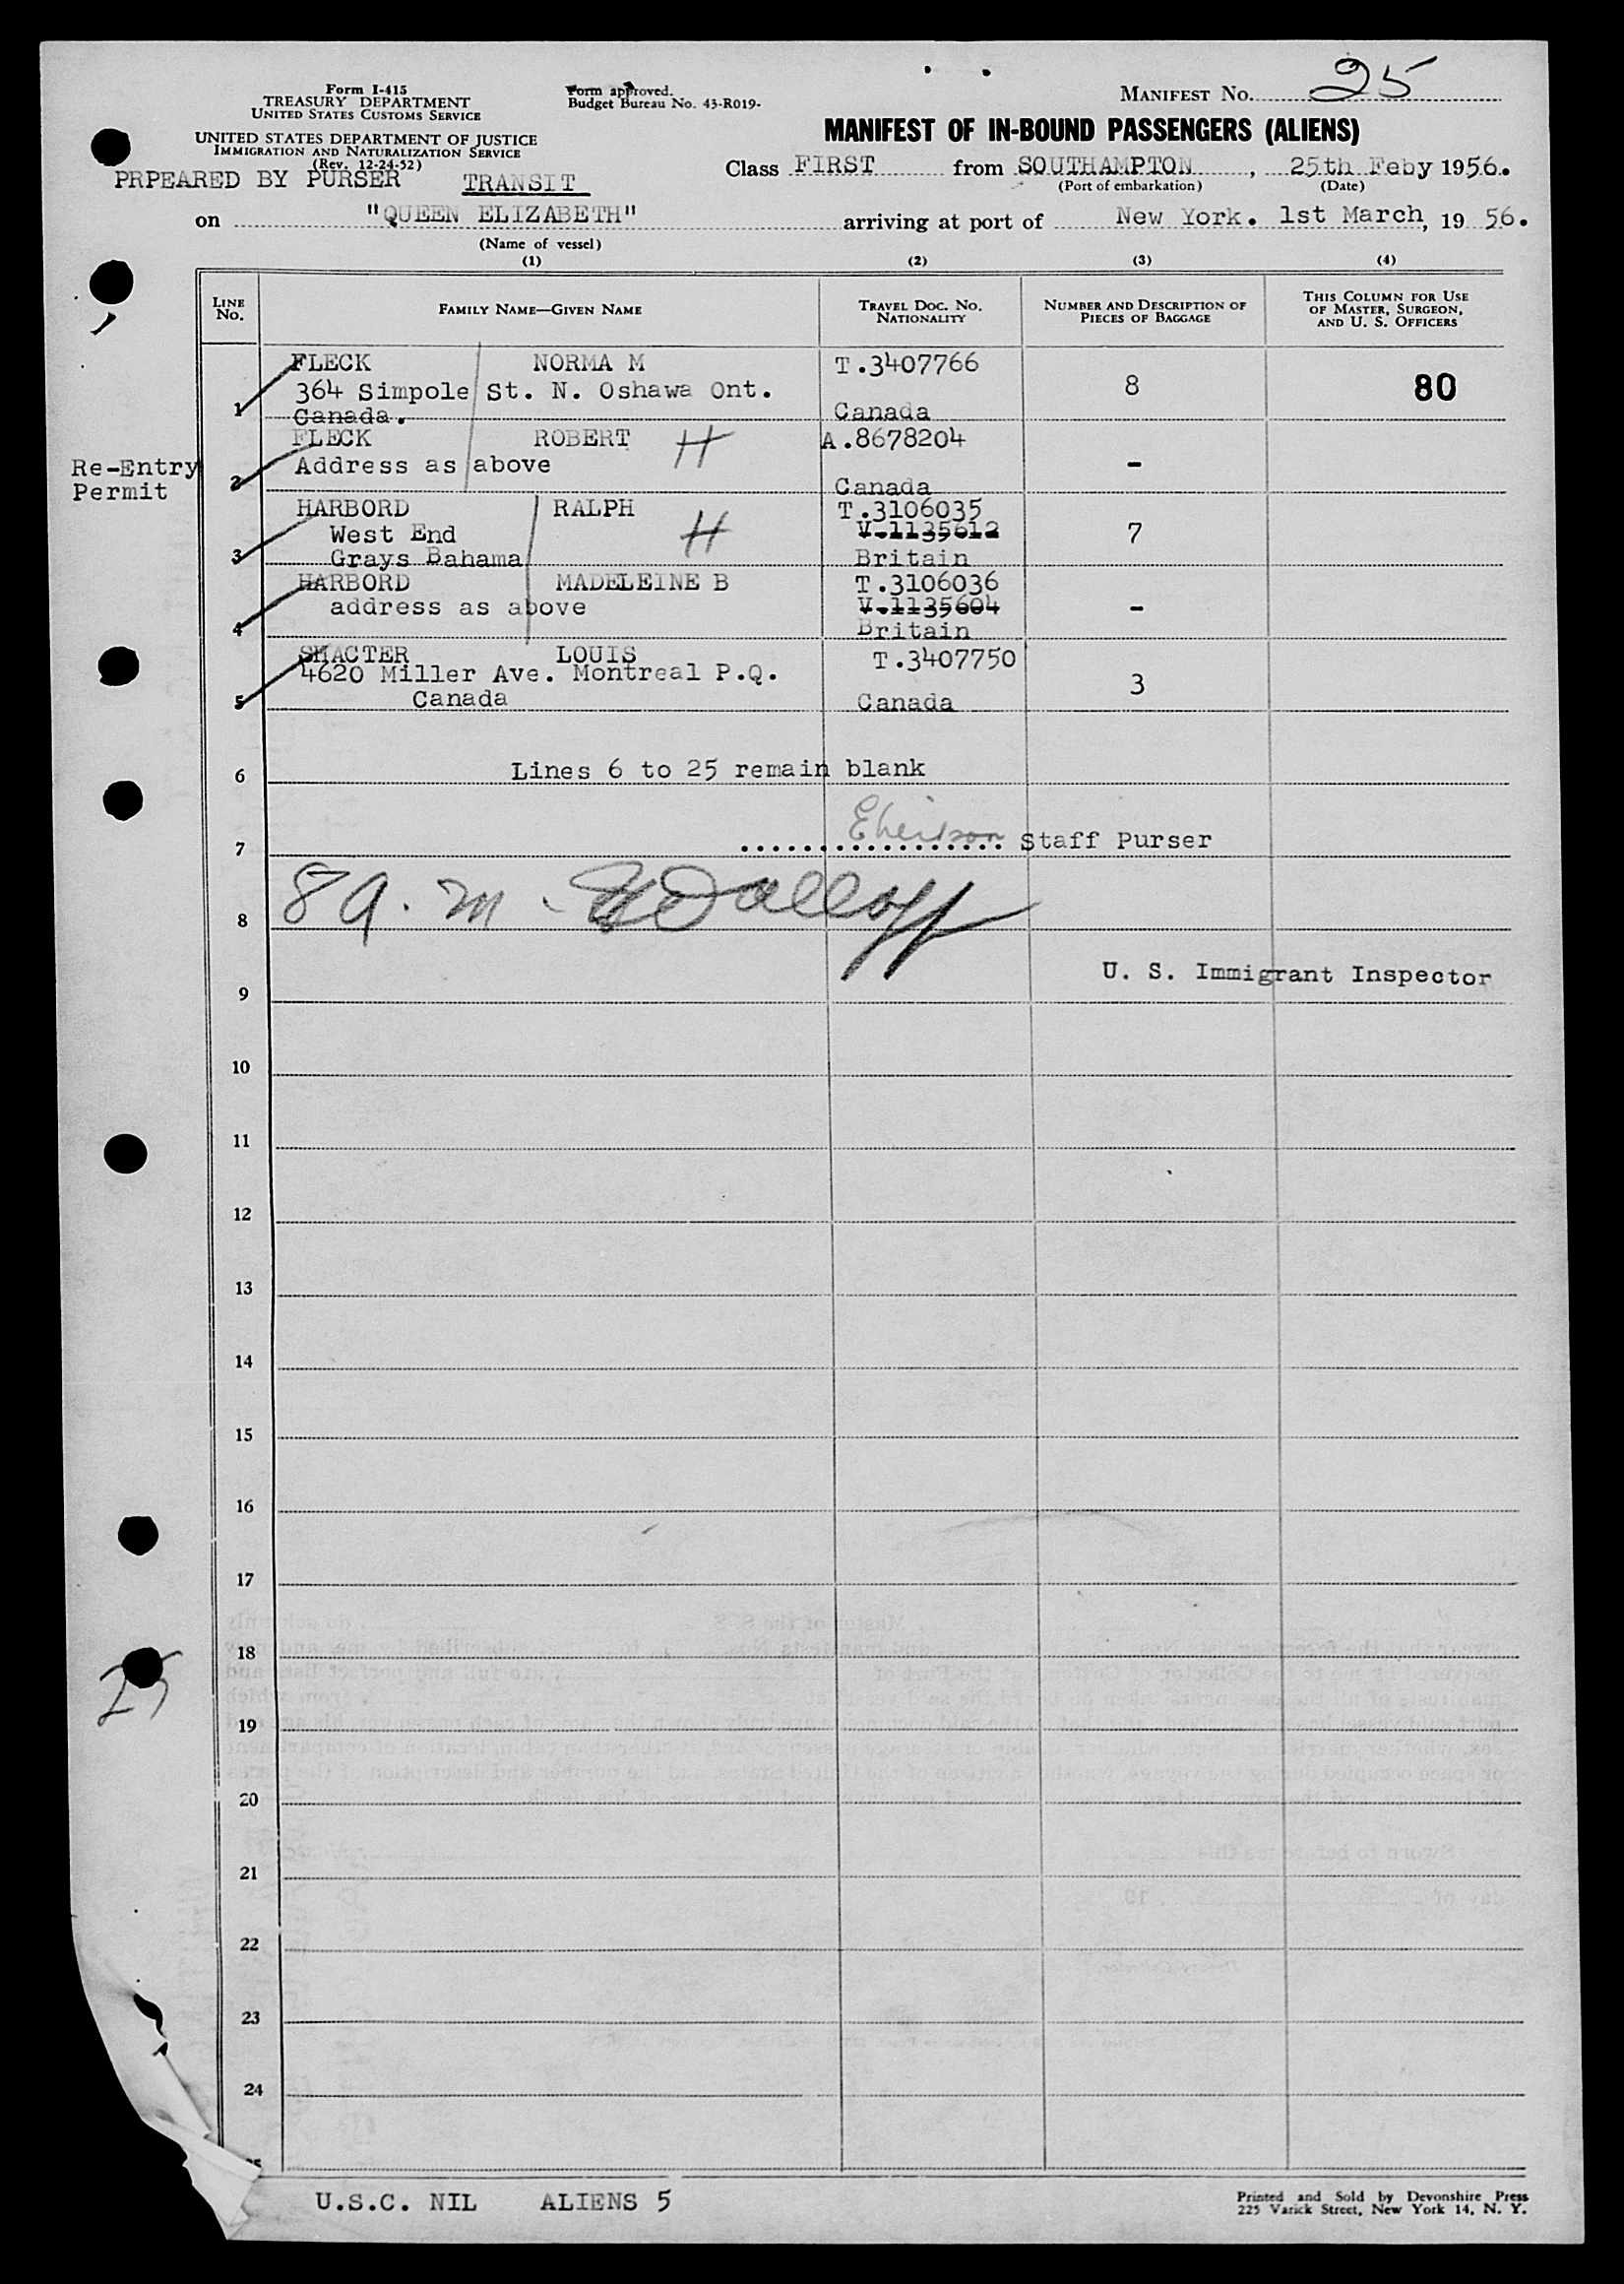 Form I-415
TREASURY DEPARTMENT
UNITED STATES CUSTOMS SERVICE
UNITED STATES DEPARTMENT OF JUSTICE
IMMIGRATION AND NATURALIZATION SERVICE
(Rev. 12-24-52)
PRPEARED BY PURSER TRANSIT
Form approved.
Budget Bureau No. 43-R019-
MANIFEST No. 25
MANIFEST OF IN-BOUND PASSENGERS (ALIENS)
Class FIRST from SOUTHAMPTON, 25th Feby 1956.
(Port of embarkation) (Date)
on "QUEEN ELIZABETH" arriving at port of New York. 1st March, 19 56.
(Name of vessel)
(1) (2) (3) (4)
LINE No. FAMILY NAME—GIVEN NAME TRAVEL DOC. NO. NATIONALITY NUMBER AND DESCRIPTION OF PIECES OF BAGGAGE THIS COLUMN FOR USE OF MASTER, SURGEON, AND U. S. OFFICERS
FLECK NORMA M T.3407766
364 Simpole St. N. Oshawa Ont. 8 80
1 Canada. Canada
FLECK ROBERT H A.8678204
Re-Entry Address as above -
Permit 2 Canada
HARBORD RALPH H T.3106035
West End V.1135612 7
3 Grays Bahama Britain
HARBORD MADELEINE B T.3106036
address as above V.1135604 -
4 Britain
SMACTER LOUIS T.3407750
4620 Miller Ave. Montreal P.Q. 3
5 Canada Canada
6 Lines 6 to 25 remain blank
7 Staff Purser
8 8 a.m.
U. S. Immigrant Inspector
9
10
11
12
13
14
15
16
17
18
25
19
20
21
22
23
24
U.S.C. NIL ALIENS 5
Printed and Sold by Devonshire Press
225 Varick Street, New York 14, N. Y.